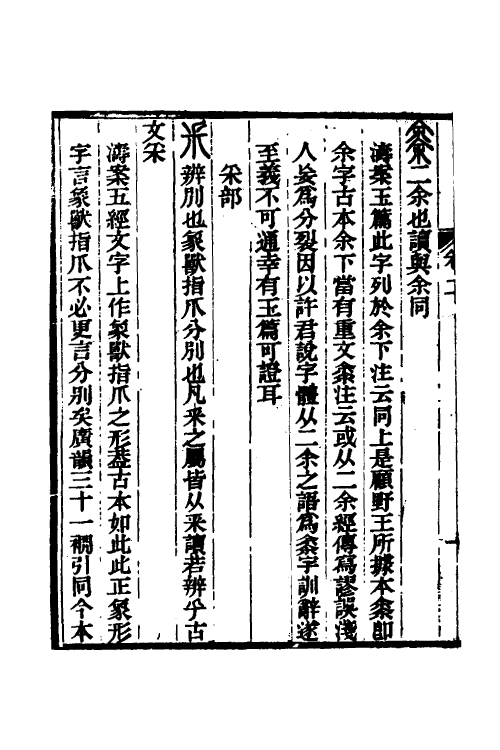 𠎳二余也讀與余同
濤案玉篇此字列於余下注云同上是顧野王所據本𠎳即
余字古本余下當有重文𠎳注云或从二余經傳寫謬誤淺
人妄爲分裂因以許君說字體从二余之語爲𠎳字訓辭遂
至義不可通幸有玉篇可證耳
釆部
釆辨別也象獸指爪分別也凡釆之屬皆从釆讀若辨𠂞古
文釆
濤案五經文字上作象獸指爪之形葢古本如此此正象形
字言象獸指爪不必更言分別矣廣韻三十一襉引同今本